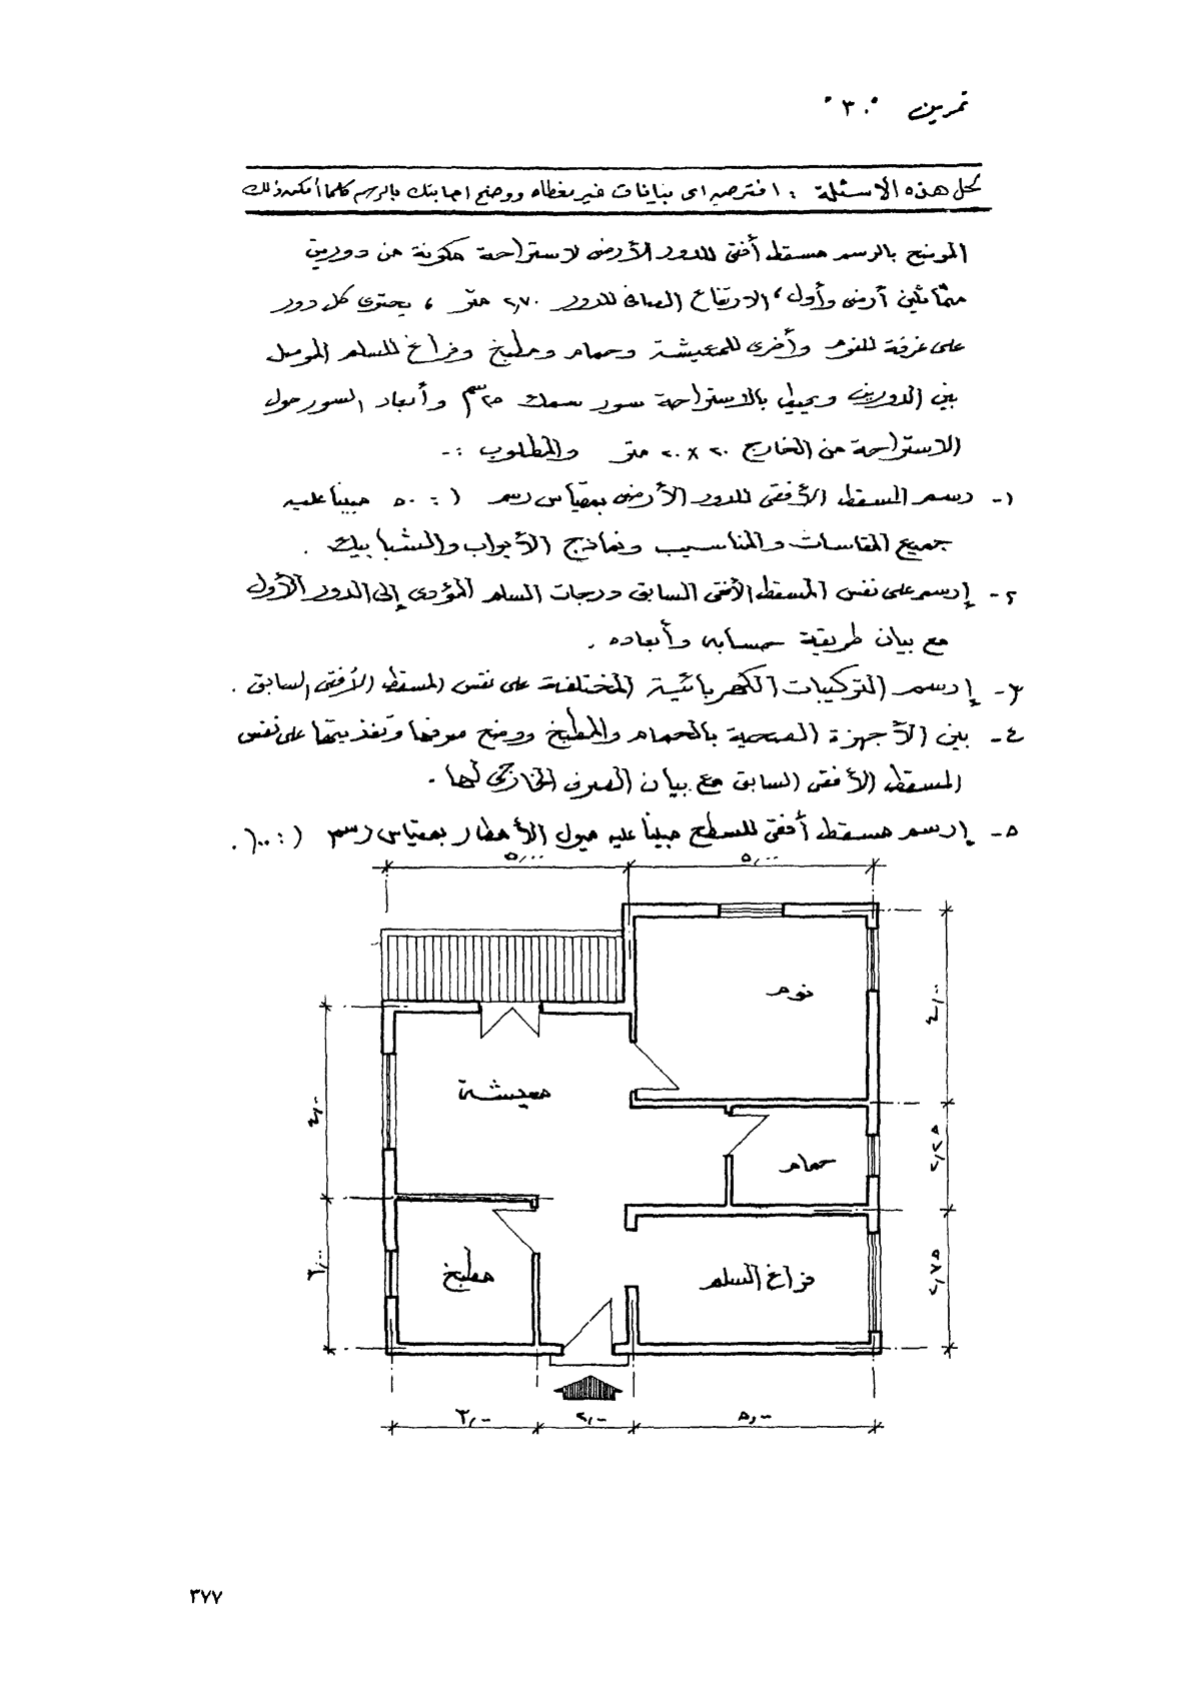 تمرين "٣٠"
لحل هذه الأسئلة : افترض أى بيانات غير معطاه ووضح اجابتك بالرسم كلما أمكن ذلك
الموضح بالرسم مسقط أفقى للدور الأرضى لاستراحة مكونة من دورين
متماثلين أرضى وأول، الارتفاع الصافى للدور ٢,٧٠ متر ، يحتوى كل دور
على غرفة للنوم وأخرى للمعيشة وحمام ومطبخ وفراغ للسلم الموصل
بين الدورين ويحيط بالاستراحة سور سمك ٢٥سم وأبعاد السور حول
الاستراحة من الخارج ٢٠ x ٢٠ متر والمطلوب :-
١- رسم المسقط الأفقى للدور الأرضى بمقياس رسم ١ : ٥٠ مبينا عليه
جميع المقاسات والمناسيب ونماذج الأبواب والشبابيك .
٢- إرسم على نفس المسقط الأفقى السابق درجات السلم المؤدى إلى الدور الأول
مع بيان طريقة حسابه وأبعاده .
٣- إرسم التركيبات الكهربائية المختلفة على نفس المسقط الأفقى السابق .
٤- بين الأجهزة الصحية بالحمام والمطبخ ووضح صرفها وتغذيتها على نفس
المسقط الأفقى السابق مع بيان الصرف الخارجى لها .
٥- إرسم مسقط أفقى للسطح مبينا عليه ميول الأمطار بمقياس رسم ١ : ١٠٠ .
٥,٠٠ ٥,٠٠
نوم
٤,٠٠
معيشة
٤,٠٠
حمام
٢,٢٥
مطبخ
فراغ السلم
٣,٠٠
٢,٧٥
٣,٠٠ ٢,٠٠ ٥,٠٠
٣٧٧